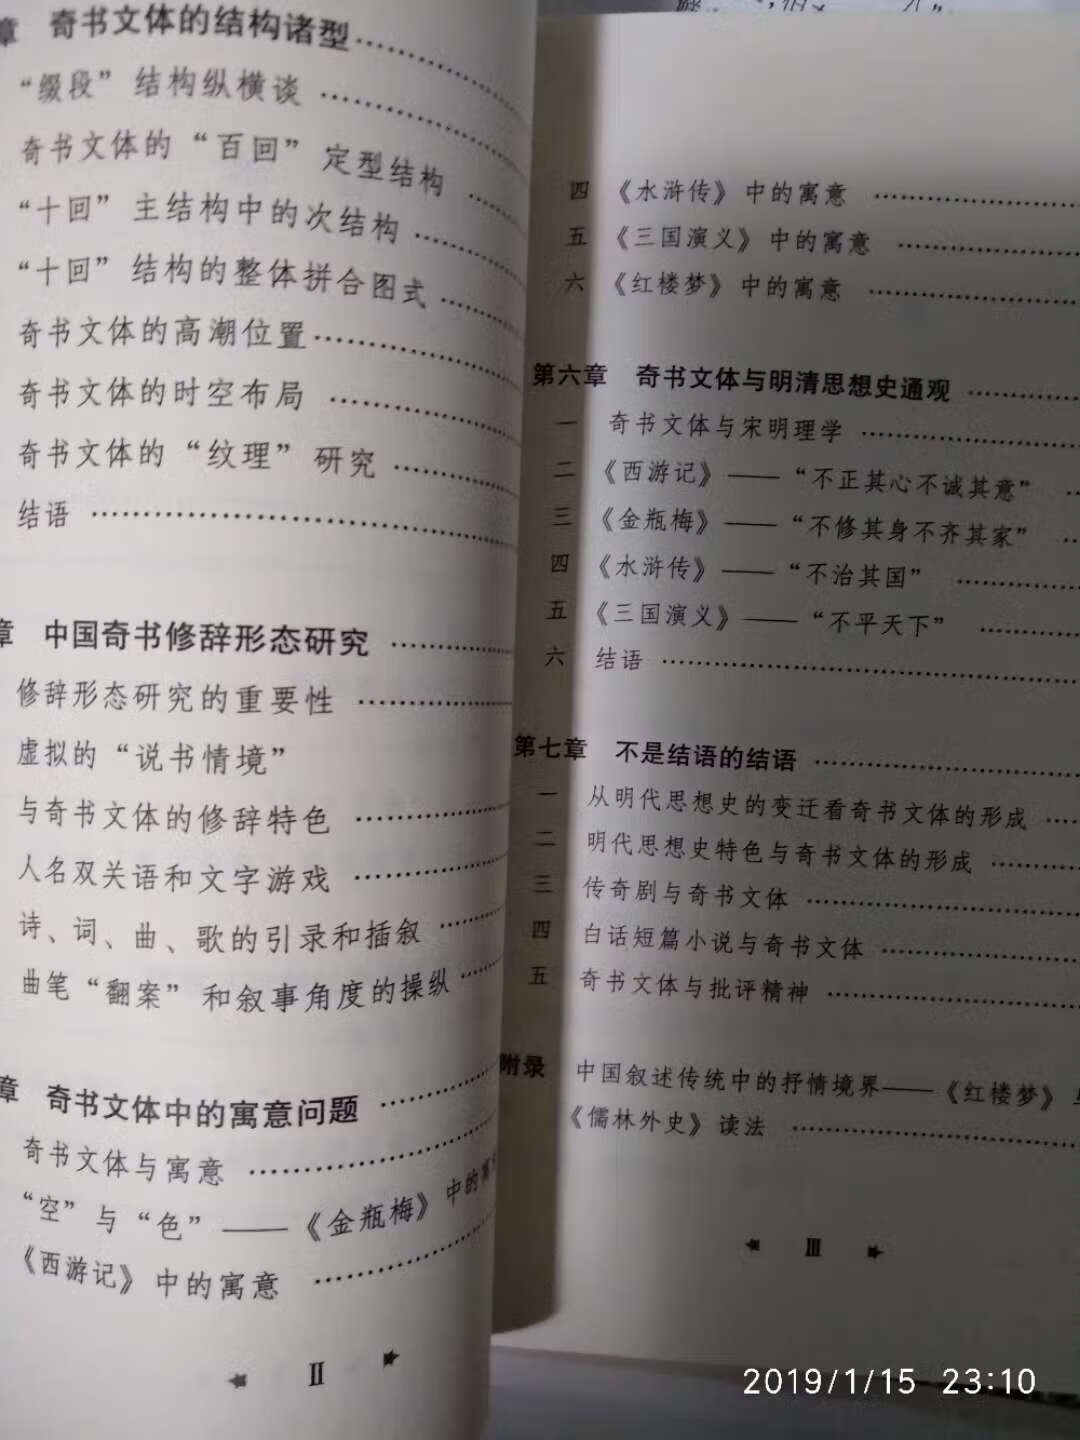 章 奇书文体的结构诸型
“缀段”结构纵横谈
奇书文体的“百回”定型结构
“十回”主结构中的次结构
“十回”结构的整体拼合图式
奇书文体的高潮位置
奇书文体的时空布局
奇书文体的“纹理”研究
结语
章 中国奇书修辞形态研究
修辞形态研究的重要性
虚拟的“说书情境”
与奇书文体的修辞特色
人名双关语和文字游戏
诗、词、曲、歌的引录和插叙
曲笔“翻案”和叙事角度的操纵
章 奇书文体中的寓意问题
奇书文体与寓意
“空”与“色”——《金瓶梅》中的寓
《西游记》中的寓意
II
四 《水浒传》中的寓意
五 《三国演义》中的寓意
六 《红楼梦》中的寓意
第六章 奇书文体与明清思想史通观
一 奇书文体与宋明理学
二 《西游记》——“不正其心不诚其意”
三 《金瓶梅》——“不修其身不齐其家”
四 《水浒传》——“不治其国”
五 《三国演义》——“不平天下”
六 结语
第七章 不是结语的结语
一 从明代思想史的变迁看奇书文体的形成
二 明代思想史特色与奇书文体的形成
三 传奇剧与奇书文体
四 白话短篇小说与奇书文体
五 奇书文体与批评精神
附录 中国叙述传统中的抒情境界——《红楼梦》
《儒林外史》读法
III
2019/1/15 23:10